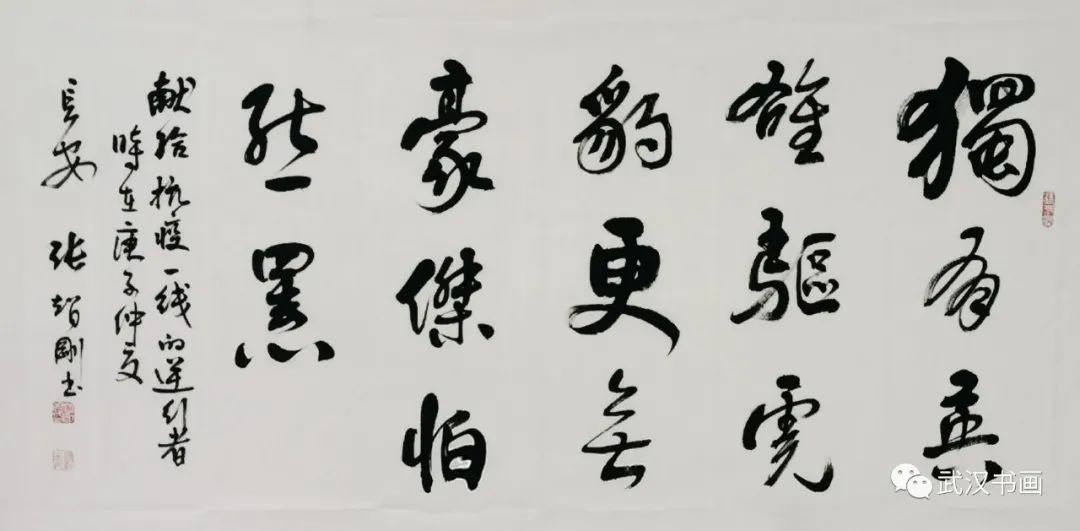 獨有英
雄驅虎
豹更無
豪傑怕
熊羆
献给抗疫一线的逆行者
時在庚子仲夏
長安 張智剛书
武汉书画